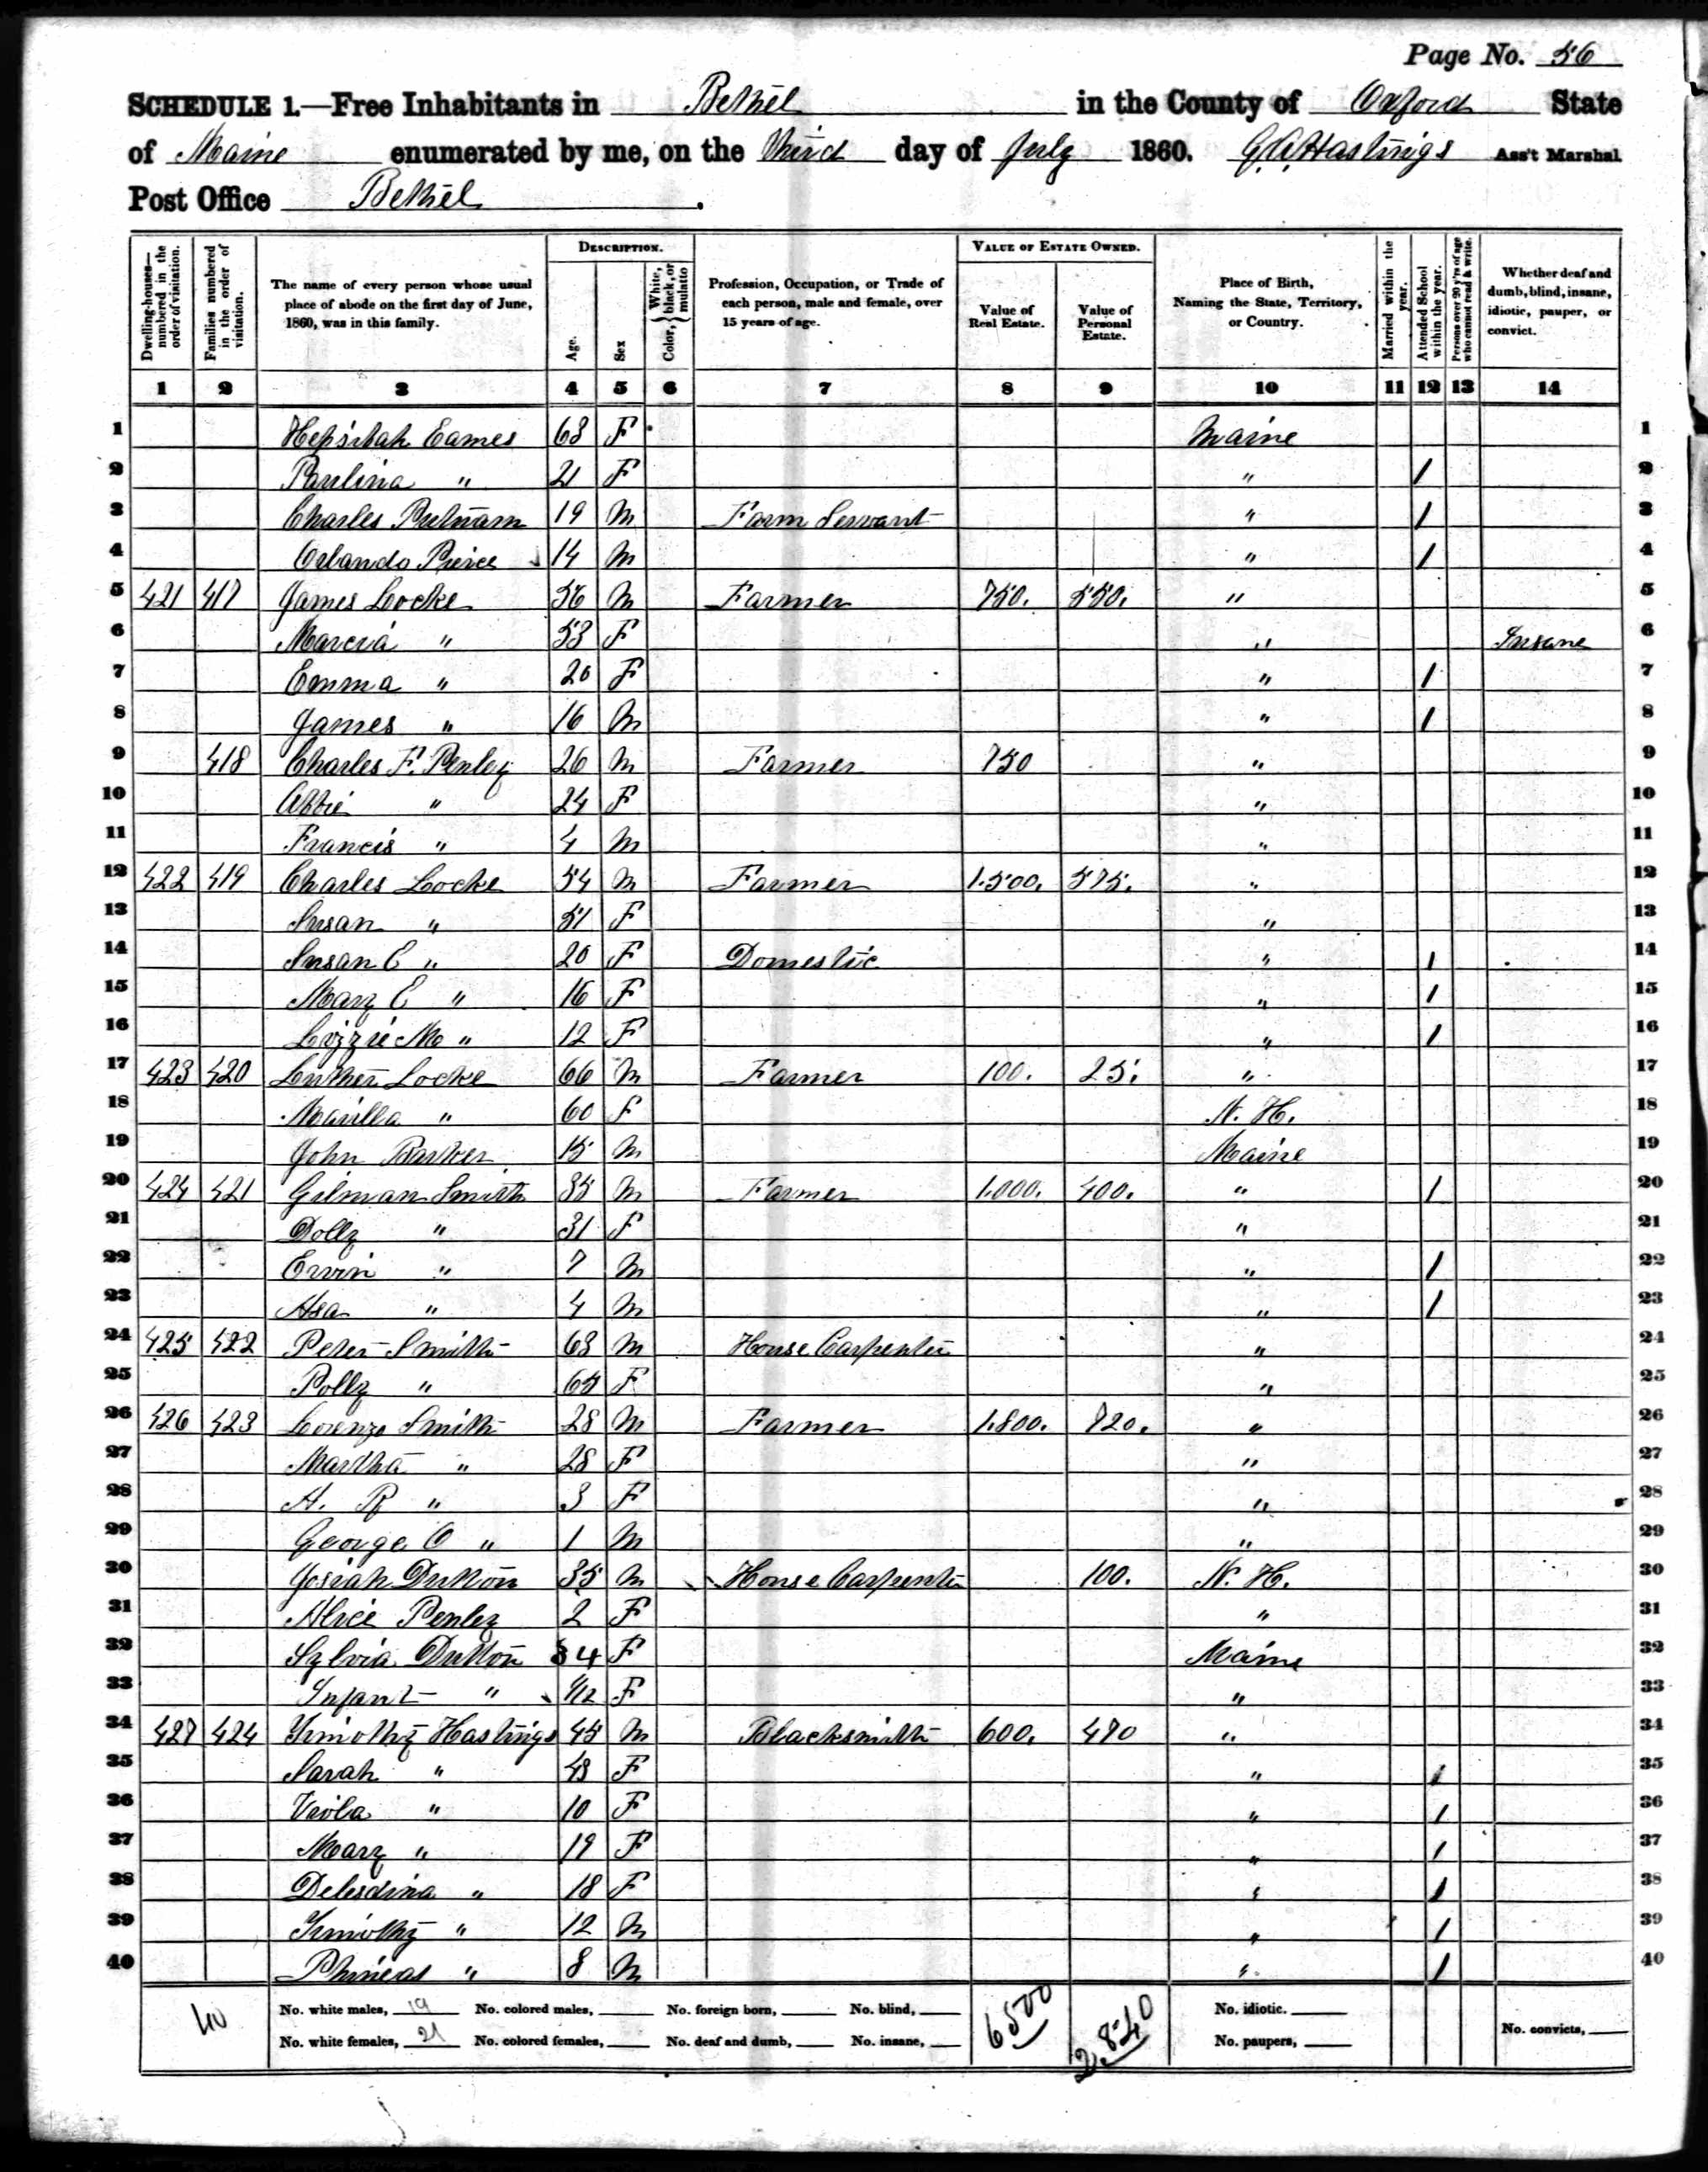 Page No. 56
SCHEDULE 1.—Free Inhabitants in Bethel in the County of Oxford State
of Maine enumerated by me, on the Third day of July 1860. G. A. Hastings Ass't Marshal
Post Office Bethel.
Dwelling-houses—numbered in the order of visitation. Families numbered in the order of visitation. The name of every person whose usual place of abode on the first day of June, 1860, was in this family. DESCRIPTION. Age. Sex Color, White, black, or mulatto Profession, Occupation, or Trade of each person, male and female, over 15 years of age. VALUE OF ESTATE OWNED. Value of Real Estate. Value of Personal Estate. Place of Birth, Naming the State, Territory, or Country. Married within the year. Attended School within the year. Persons over 20 y'rs of age who cannot read & write. Whether deaf and dumb, blind, insane, idiotic, pauper, or convict.
1 2 3 4 5 6 7 8 9 10 11 12 13 14
1 Hepsibah Eames 68 F Maine 1
2 Paulina " 21 F " / 2
3 Charles Putnam 19 M Farm Servant " / 3
4 Orlando Peirce 14 M " / 4
5 421 417 James Locke 56 M Farmer 750. 550. " 5
6 Marcia " 53 F " Insane 6
7 Emma " 20 F " / 7
8 James " 16 M " / 8
9 418 Charles F. Penley 26 M Farmer 750 " 9
10 Abbie " 24 F " 10
11 Francis " 4 M " 11
12 422 419 Charles Locke 54 M Farmer 1.500. 575. " 12
13 Susan " 51 F " 13
14 Susan E " 20 F Domestic " / 14
15 Mary E " 16 F " / 15
16 Lizzie M " 12 F " / 16
17 423 420 Luther Locke 66 M Farmer 100. 25. " 17
18 Marilla " 60 F N. H. 18
19 John Barker 15 M Maine 19
20 424 421 Gilman Smith 35 M Farmer 1.000. 400. " / 20
21 Dolly " 31 F " 21
22 Ervin " 7 M " / 22
23 Asa " 4 M " / 23
24 425 422 Peter Smith 68 M House Carpenter " 24
25 Polly " 65 F " 25
26 426 423 Lorenzo Smith 28 M Farmer 1.800. 720. " 26
27 Martha " 28 F " 27
28 A. R " 3 F " 28
29 George O " 1 M " 29
30 Josiah Dutton 35 M House Carpenter 100. N. H. 30
31 Alice Penley 2 F " 31
32 Sylvia Dutton 34 F Maine 32
33 Infant " 1/12 F " 33
34 427 424 Timothy Hastings 45 M Blacksmith 600. 470 " 34
35 Sarah " 43 F " / 35
36 Viola " 10 F " / 36
37 Mary " 19 F " / 37
38 " 18 F " / 38
39 Timothy " 12 M " / 39
40 Phineas " 8 M " / 40
40 No. white males, 19 No. colored males, No. foreign born, No. blind, 6500 2.840 No. idiotic.
No. white females, 21 No. colored females, No. deaf and dumb, No. insane, No. paupers, No. convicts,